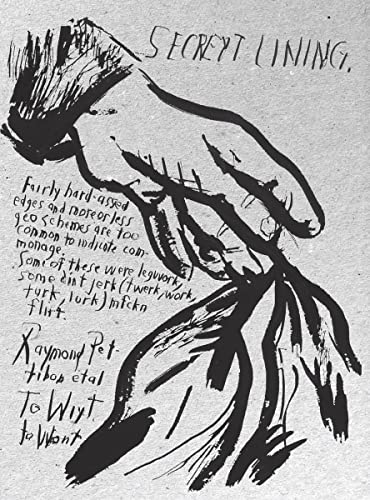 SECREYT LINING.
Fairly hard-assed
edges and more or less
geo schemes are too
common to indicate com-
monage.
Some of these were legwork,
some ain't jerk (twerk, work,
turk, lurk) mfckn
flirt.
Raymond Pet-
tibon etal
To Wiyt,
to Wont